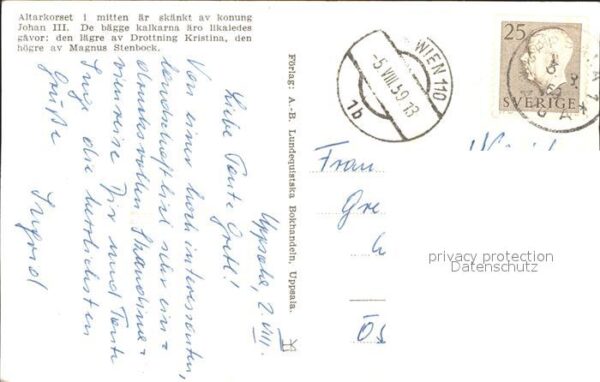 Altarkorset i mitten är skänkt av konung
Johan III. De bägge kalkarna äro likaledes
gåvor: den lägre av Drottning Kristina, den
högre av Magnus Stenbock.
Förlag: A.-B. Lundequistska Bokhandeln, Uppsala.
Uppsala, 2. VIII.
Liebe Tante Gretl!
Von einer hoch interessanten,
landschaftlich sehr ein-
drucksvollen Skandina-
vienreise Dir und Tante
Inge die herrlichsten
Grüße
Ingrid
WIEN 110
-5. VIII. 59. 13
1b
25
SVERIGE
Frau
Gre
Ös
privacy protection
Datenschutz